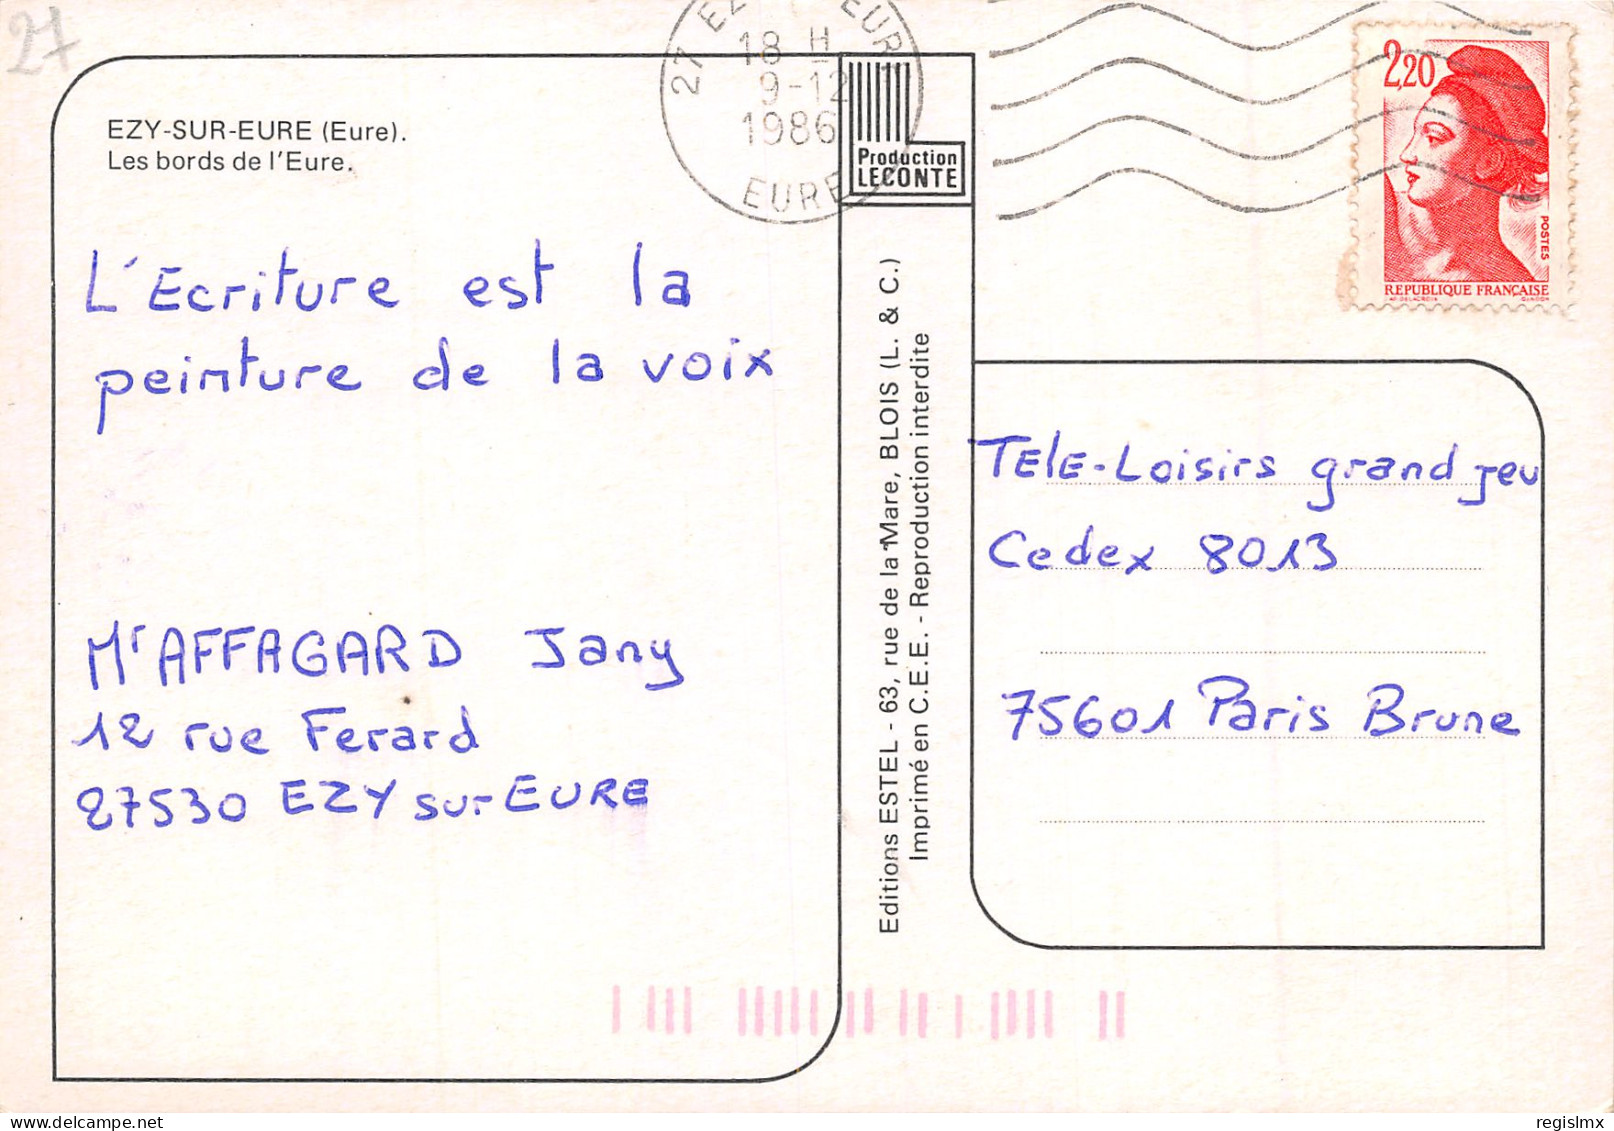 27
EZY-SUR-EURE (Eure).
Les bords de l'Eure.
L'Ecriture est la
peinture de la voix
Mr AFFAGARD Jany
12 rue Ferard
27530 EZY sur EURE
18 H
9-12
1986
EURE
Production
LECONTE
Editions ESTEL - 63, rue de la Mare, BLOIS (L. & C.)
Imprimé en C.E.E. - Reproduction interdite
2,20
POSTES
REPUBLIQUE FRANÇAISE
TELE-Loisirs grand jeu
Cedex 8013
75601 Paris Brune
regislmx